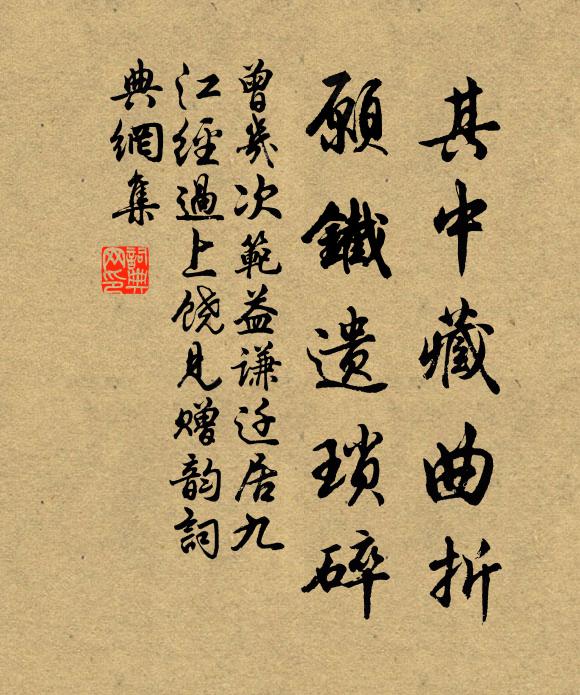 其中藏曲折
願鐵遺瑣碎
曾幾次範益謙迁居九
江經過上饶見贈韵詞
典網集
詞典网印